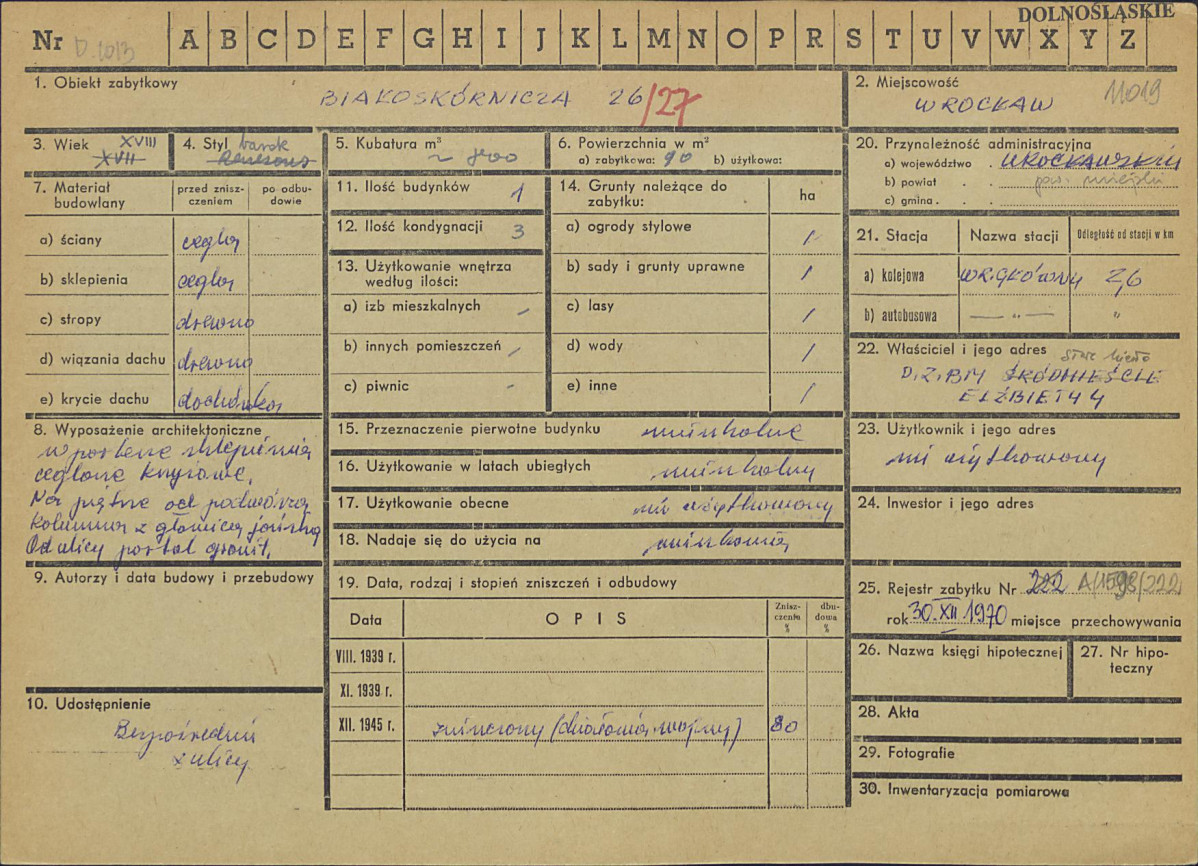 DOLNOŚLĄSKIE
Nr D 1013 A B C D E F G H I J K L M N O P R S T U V W X Y Z
1. Obiekt zabytkowy
BIAŁOSKÓRNICZA 26/27
2. Miejscowość 11019
WROCŁAW
3. Wiek XVIII
XVII
4. Styl barok
renesans
5. Kubatura m³
6. Powierzchnia w m²
a) zabytkowa: 90 b) użytkowa:
20. Przynależność administracyjna
a) województwo . WROCŁAWSKIE
b) powiat . . pow. miejski
c) gmina . . .
7. Materiał budowlany
przed zniszczeniem
po odbudowie
a) ściany cegła
b) sklepienia cegła
c) stropy drewno
d) wiązania dachu drewno
e) krycie dachu dachówka
11. Ilość budynków 1
12. Ilość kondygnacji 3
13. Użytkowanie wnętrza
według ilości:
a) izb mieszkalnych -
b) innych pomieszczeń -
c) piwnic -
14. Grunty należące do
zabytku:
ha
a) ogrody stylowe /
b) sady i grunty uprawne /
c) lasy /
d) wody /
e) inne /
21. Stacja Nazwa stacji Odległość od stacji w km
a) kolejowa WR. GŁÓWNY 2,6
b) autobusowa — „ — „
22. Właściciel i jego adres Stare Miasto
D.Z.B.M ŚRÓDMIEŚCIE
ELŻBIETY 4
8. Wyposażenie architektoniczne
w parterze sklepienia
ceglane krzyżowe.
Na piętrze od podwórza
kolumna z głowicą jońską
Od ulicy portal granit.
15. Przeznaczenie pierwotne budynku mieszkalne
16. Użytkowanie w latach ubiegłych mieszkalny
17. Użytkowanie obecne nie użytkowany
18. Nadaje się do użycia na mieszkania
23. Użytkownik i jego adres
nie użytkowany
24. Inwestor i jego adres
9. Autorzy i data budowy i przebudowy
19. Data, rodzaj i stopień zniszczeń i odbudowy
Data OPIS Zniszczenia % dbudowa %
VIII. 1939 r.
XI. 1939 r.
XII. 1945 r. zniszczony (działania wojny) 80
25. Rejestr zabytku Nr 222 A/1598/222
rok 30.XII.1970 miejsce przechowywania
26. Nazwa księgi hipotecznej
27. Nr hipoteczny
10. Udostępnienie
Bezpośrednio
z ulicy
28. Akta
29. Fotografie
30. Inwentaryzacja pomiarowa